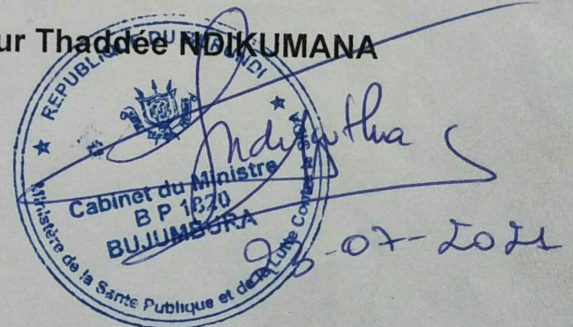 ur Thaddée NDIKUMANA
REPUBLIQUE DU BURUNDI
Cabinet du Ministre
B P 1820
BUJUMBURA
Ministère de la Santé Publique et de la Lutte Contre
-07-2021